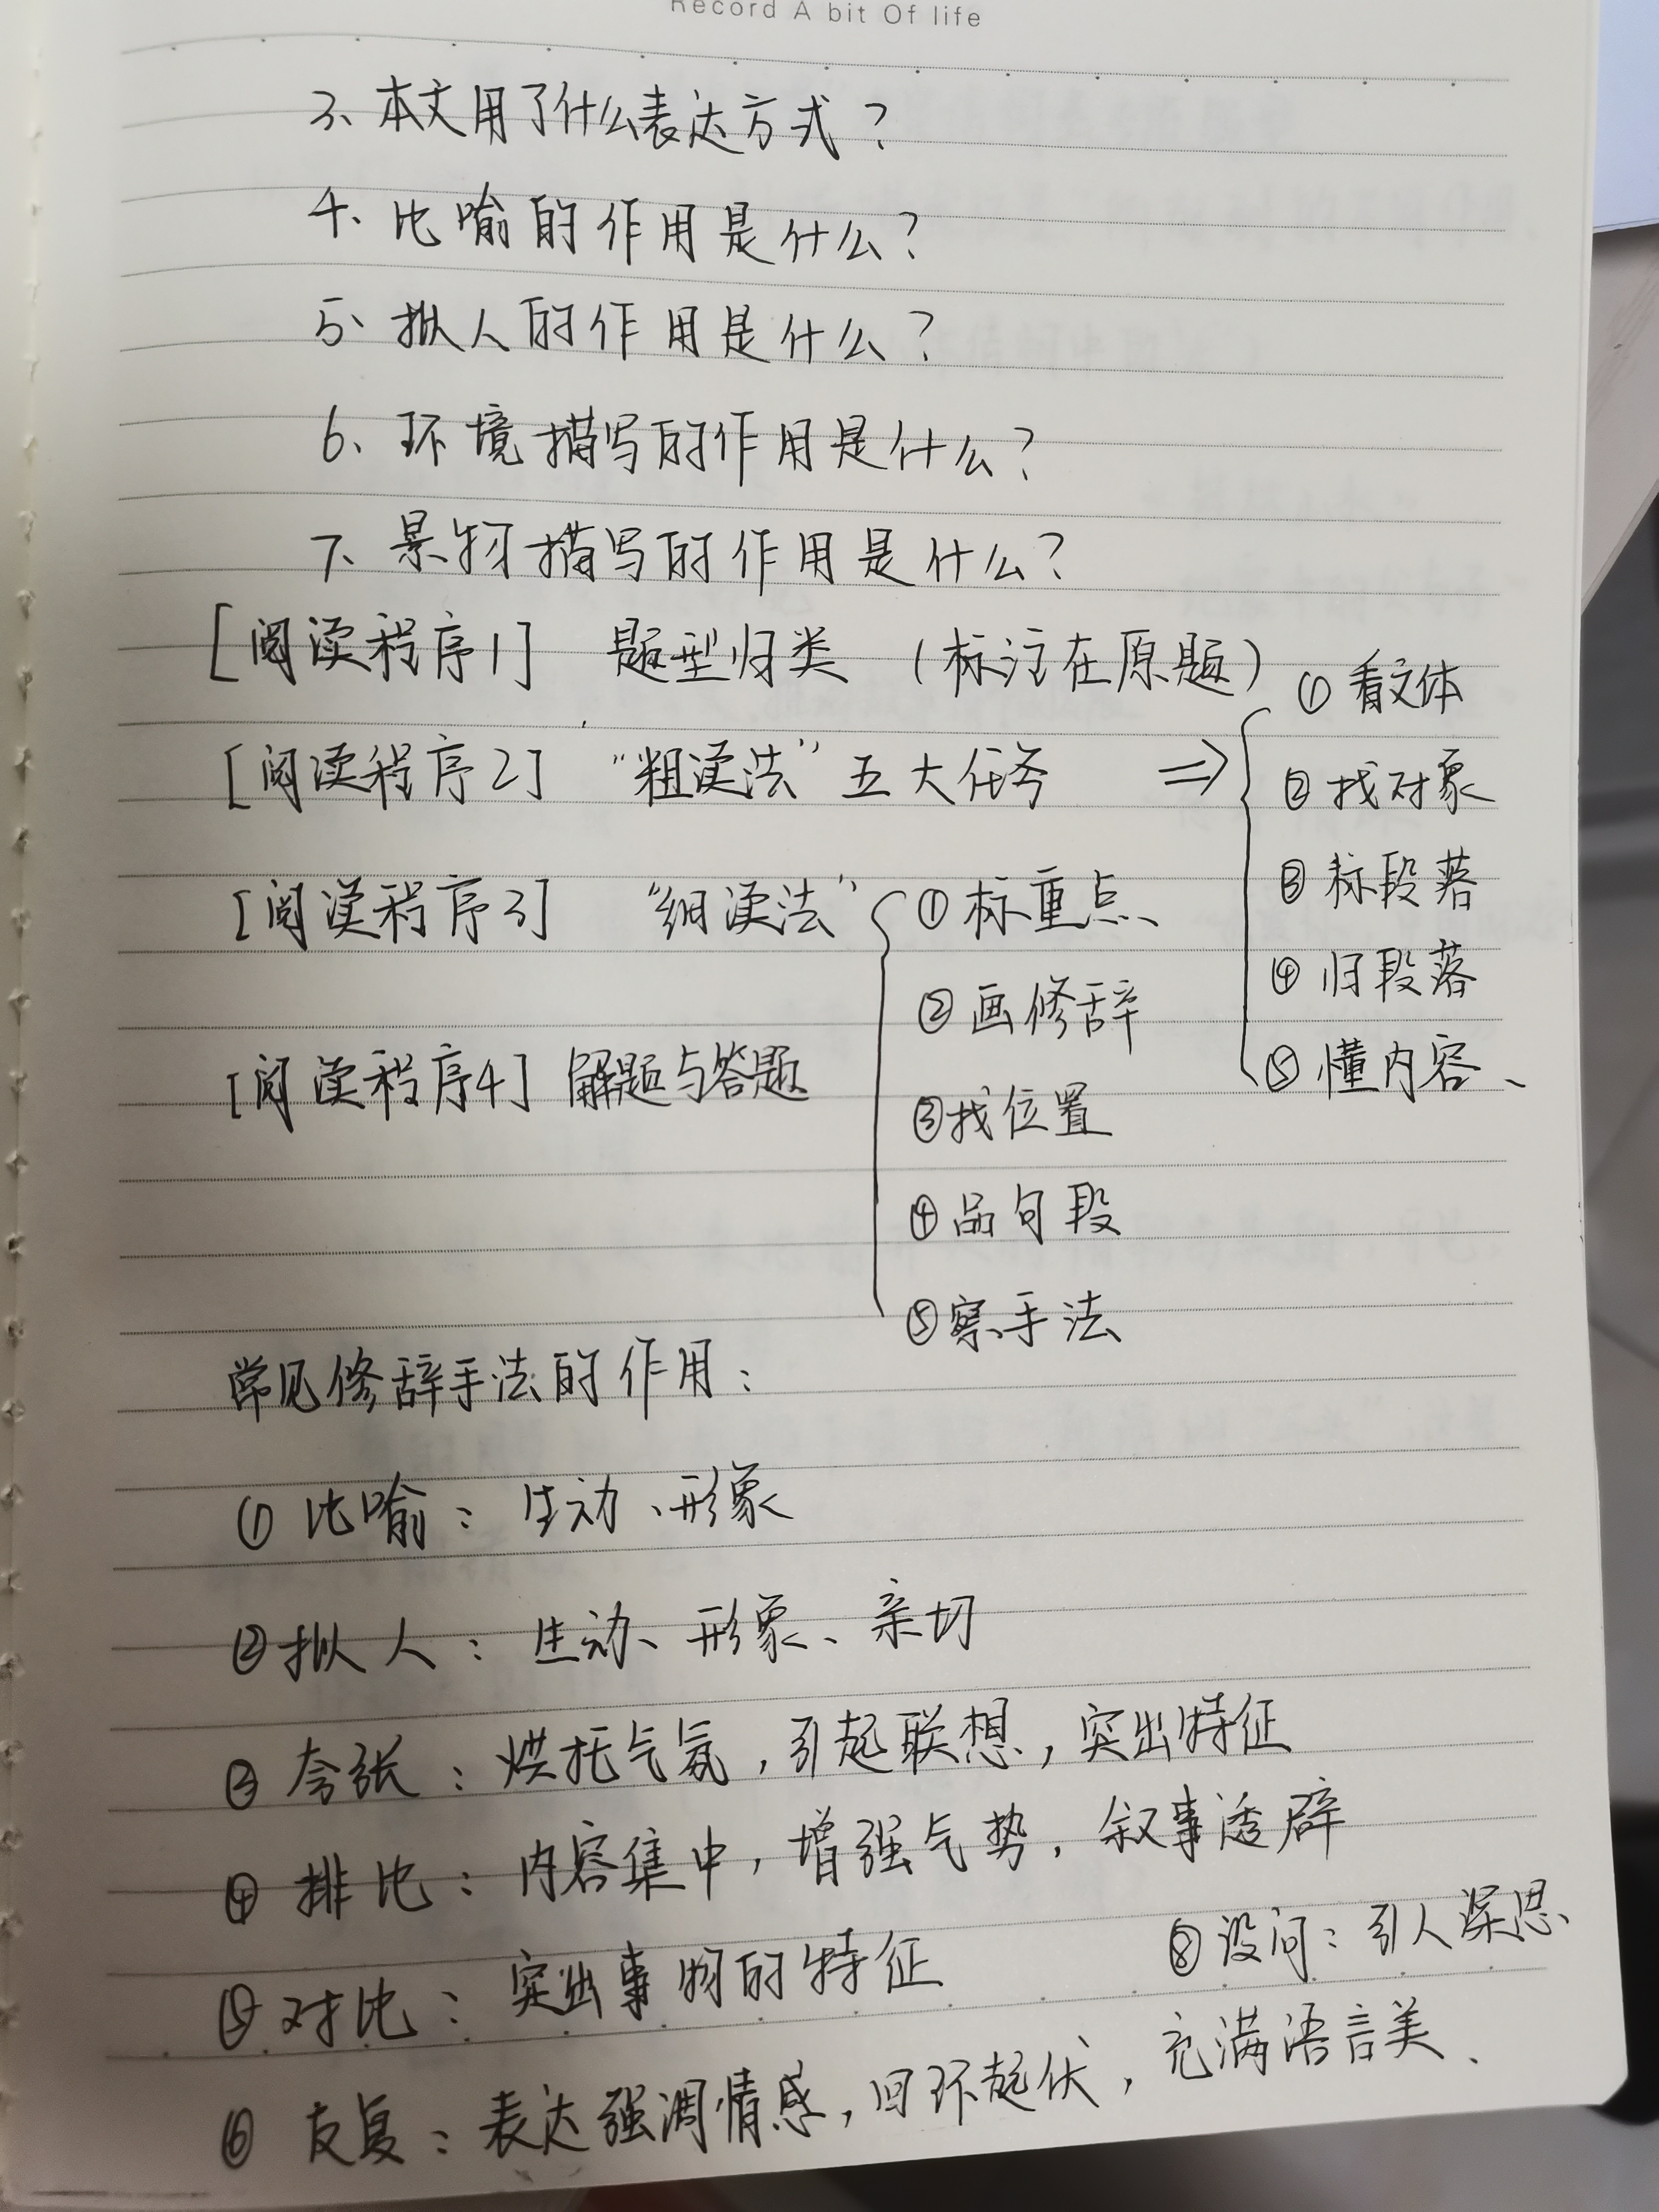 Record A bit Of life
3、本文用了什么表达方式？
4、比喻的作用是什么？
5、拟人的作用是什么？
6、环境描写的作用是什么？
7、景物描写的作用是什么？
[阅读程序1] 题型归类 (标注在原题)
[阅读程序2] “粗读法”五大任务 ⇒
①看文体
②找对象
③标段落
④归段落
⑤懂内容、
[阅读程序3] “细读法”
①标重点、
②画修辞
③找位置
④品句段
⑤察手法
[阅读程序4] 解题与答题
常见修辞手法的作用：
①比喻：生动、形象
②拟人：生动、形象、亲切
③夸张：烘托气氛，引起联想，突出特征
④排比：内容集中，增强气势，叙事透辟
⑤对比：突出事物的特征
⑧设问：引人深思、
⑥反复：表达强调情感，回环起伏，充满语言美、